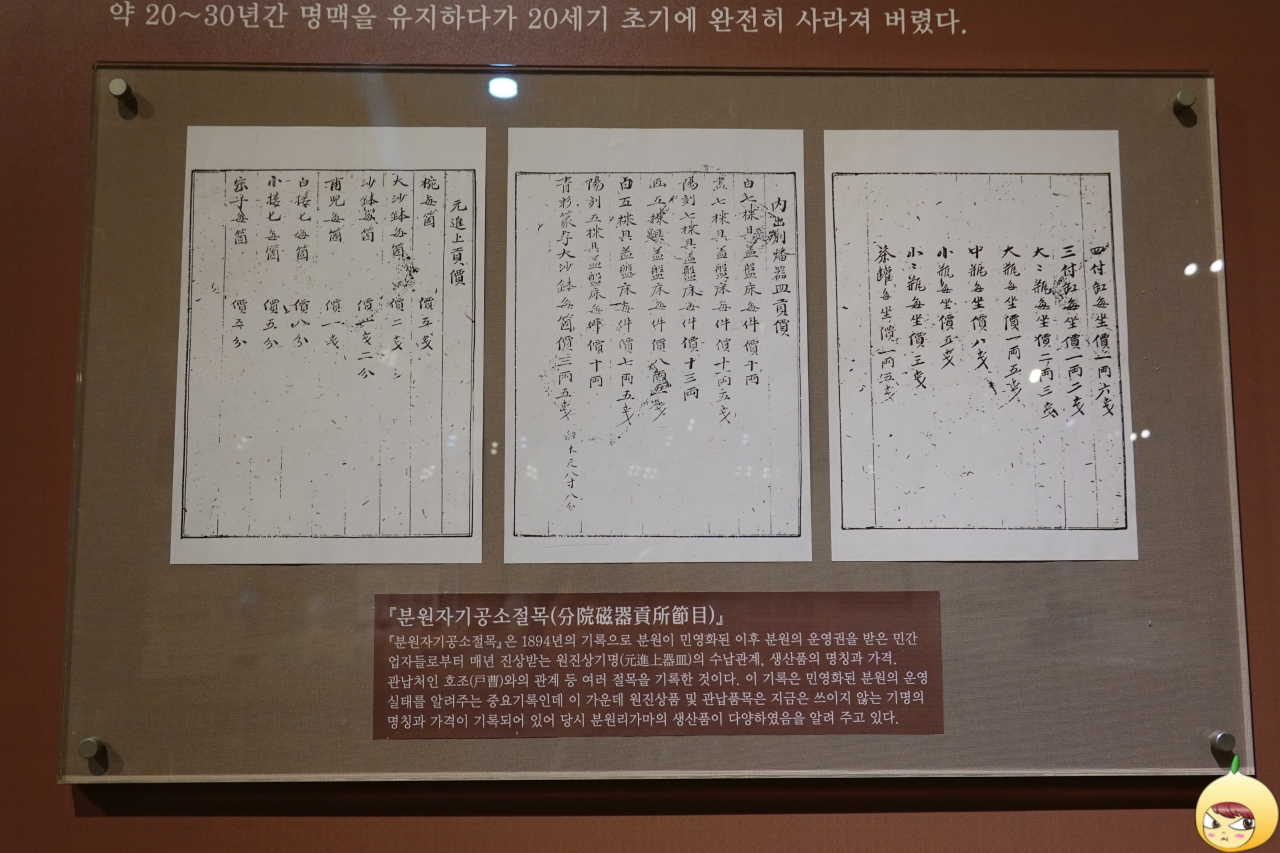 약 20～30년간 명맥을 유지하다가 20세기 초기에 완전히 사라져 버렸다.
四付缸每坐價一両六戔
三付缸每坐價一両二戔
大〻瓶每坐價二両三戔
大瓶每坐價一両五戔
中瓶每坐價八戔
小瓶每坐價五戔
小〻瓶每坐價三戔
茶罐每坐價一両五戔
內出別燔器皿貢價
白七楪具盖盤床每件價十両
畵七楪具盖盤床每件價十一両五戔
陽刻七楪具盖盤床每件價十三両
画五楪具盖盤床每件價八両五戔
白五楪具盖盤床每件價七両五戔
陽刻五楪具盖盤床每件價十両
青彩篆字大沙鉢每箇價三両五戔
木尺八寸八分
元進上貢價
椀每箇 價五戔
大沙鉢每箇 價二戔
沙鉢每箇 價一戔二分
甫兒每箇 價一戔
白楪匕每箇 價八分
小楪匕每箇 價五分
宗子每箇 價五分
『분원자기공소절목(分院磁器貢所節目)』
『분원자기공소절목』은 1894년의 기록으로 분원이 민영화된 이후 분원의 운영권을 받은 민간
업자들로부터 매년 진상받는 원진상기명(元進上器皿)의 수납관계, 생산품의 명칭과 가격.
관납처인 호조(戶曹)와의 관계 등 여러 절목을 기록한 것이다. 이 기록은 민영화된 분원의 운영
실태를 알려주는 중요기록인데 이 가운데 원진상품 및 관납품목은 지금은 쓰이지 않는 기명의
명칭과 가격이 기록되어 있어 당시 분원리가마의 생산품이 다양하였음을 알려 주고 있다.